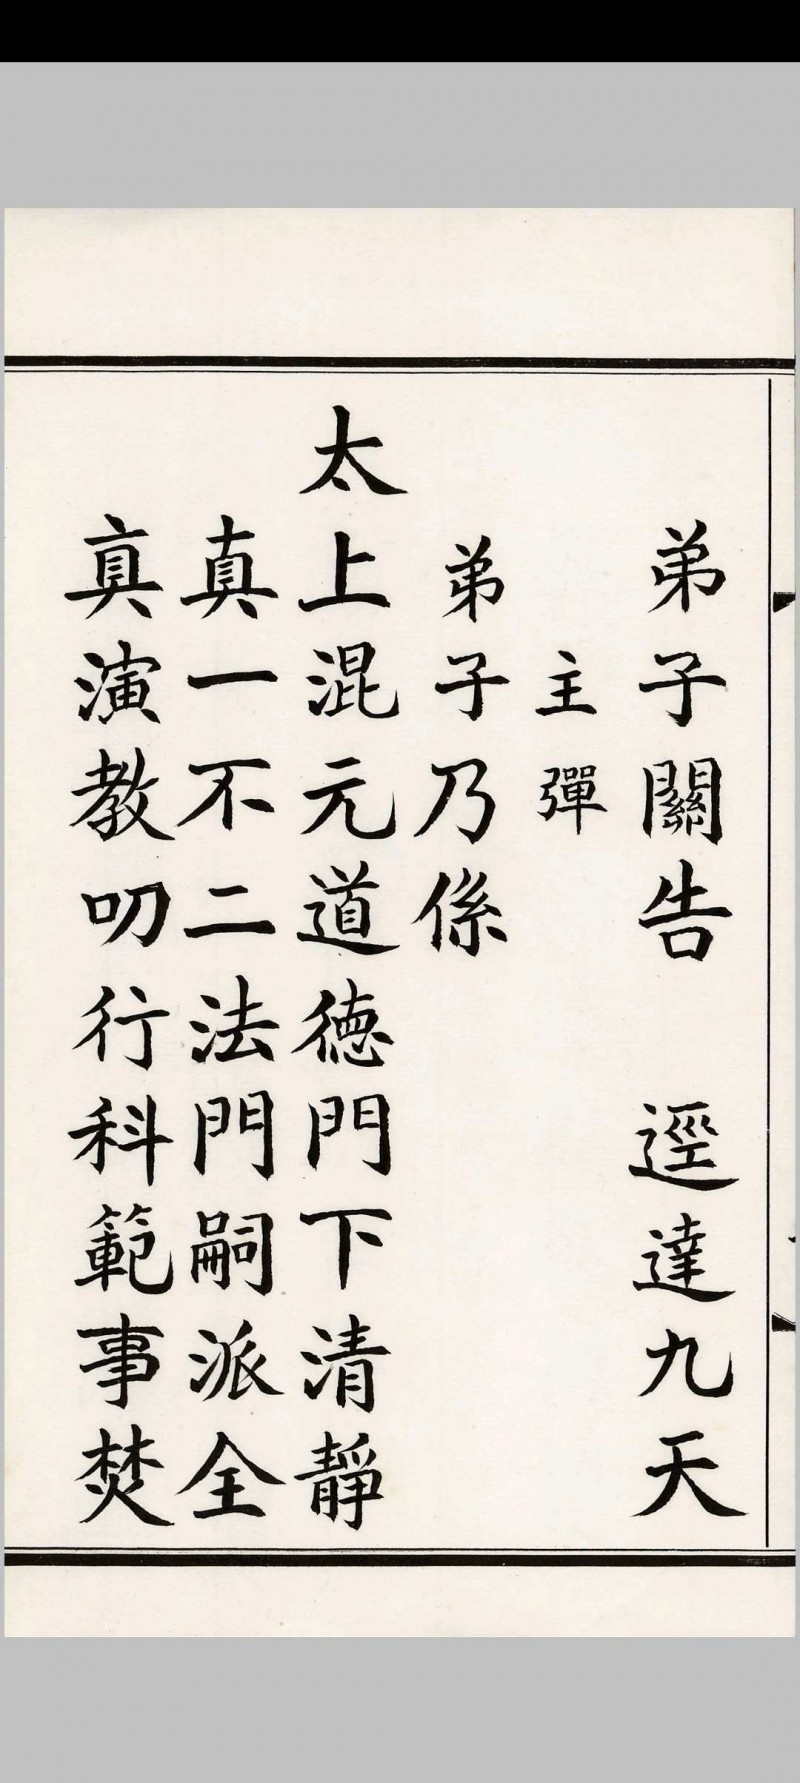 弟子關告　逕達九天
主彈
弟子乃係
太上混元道德門下清靜
真一不二法門嗣派全
真演教叨行科範事焚